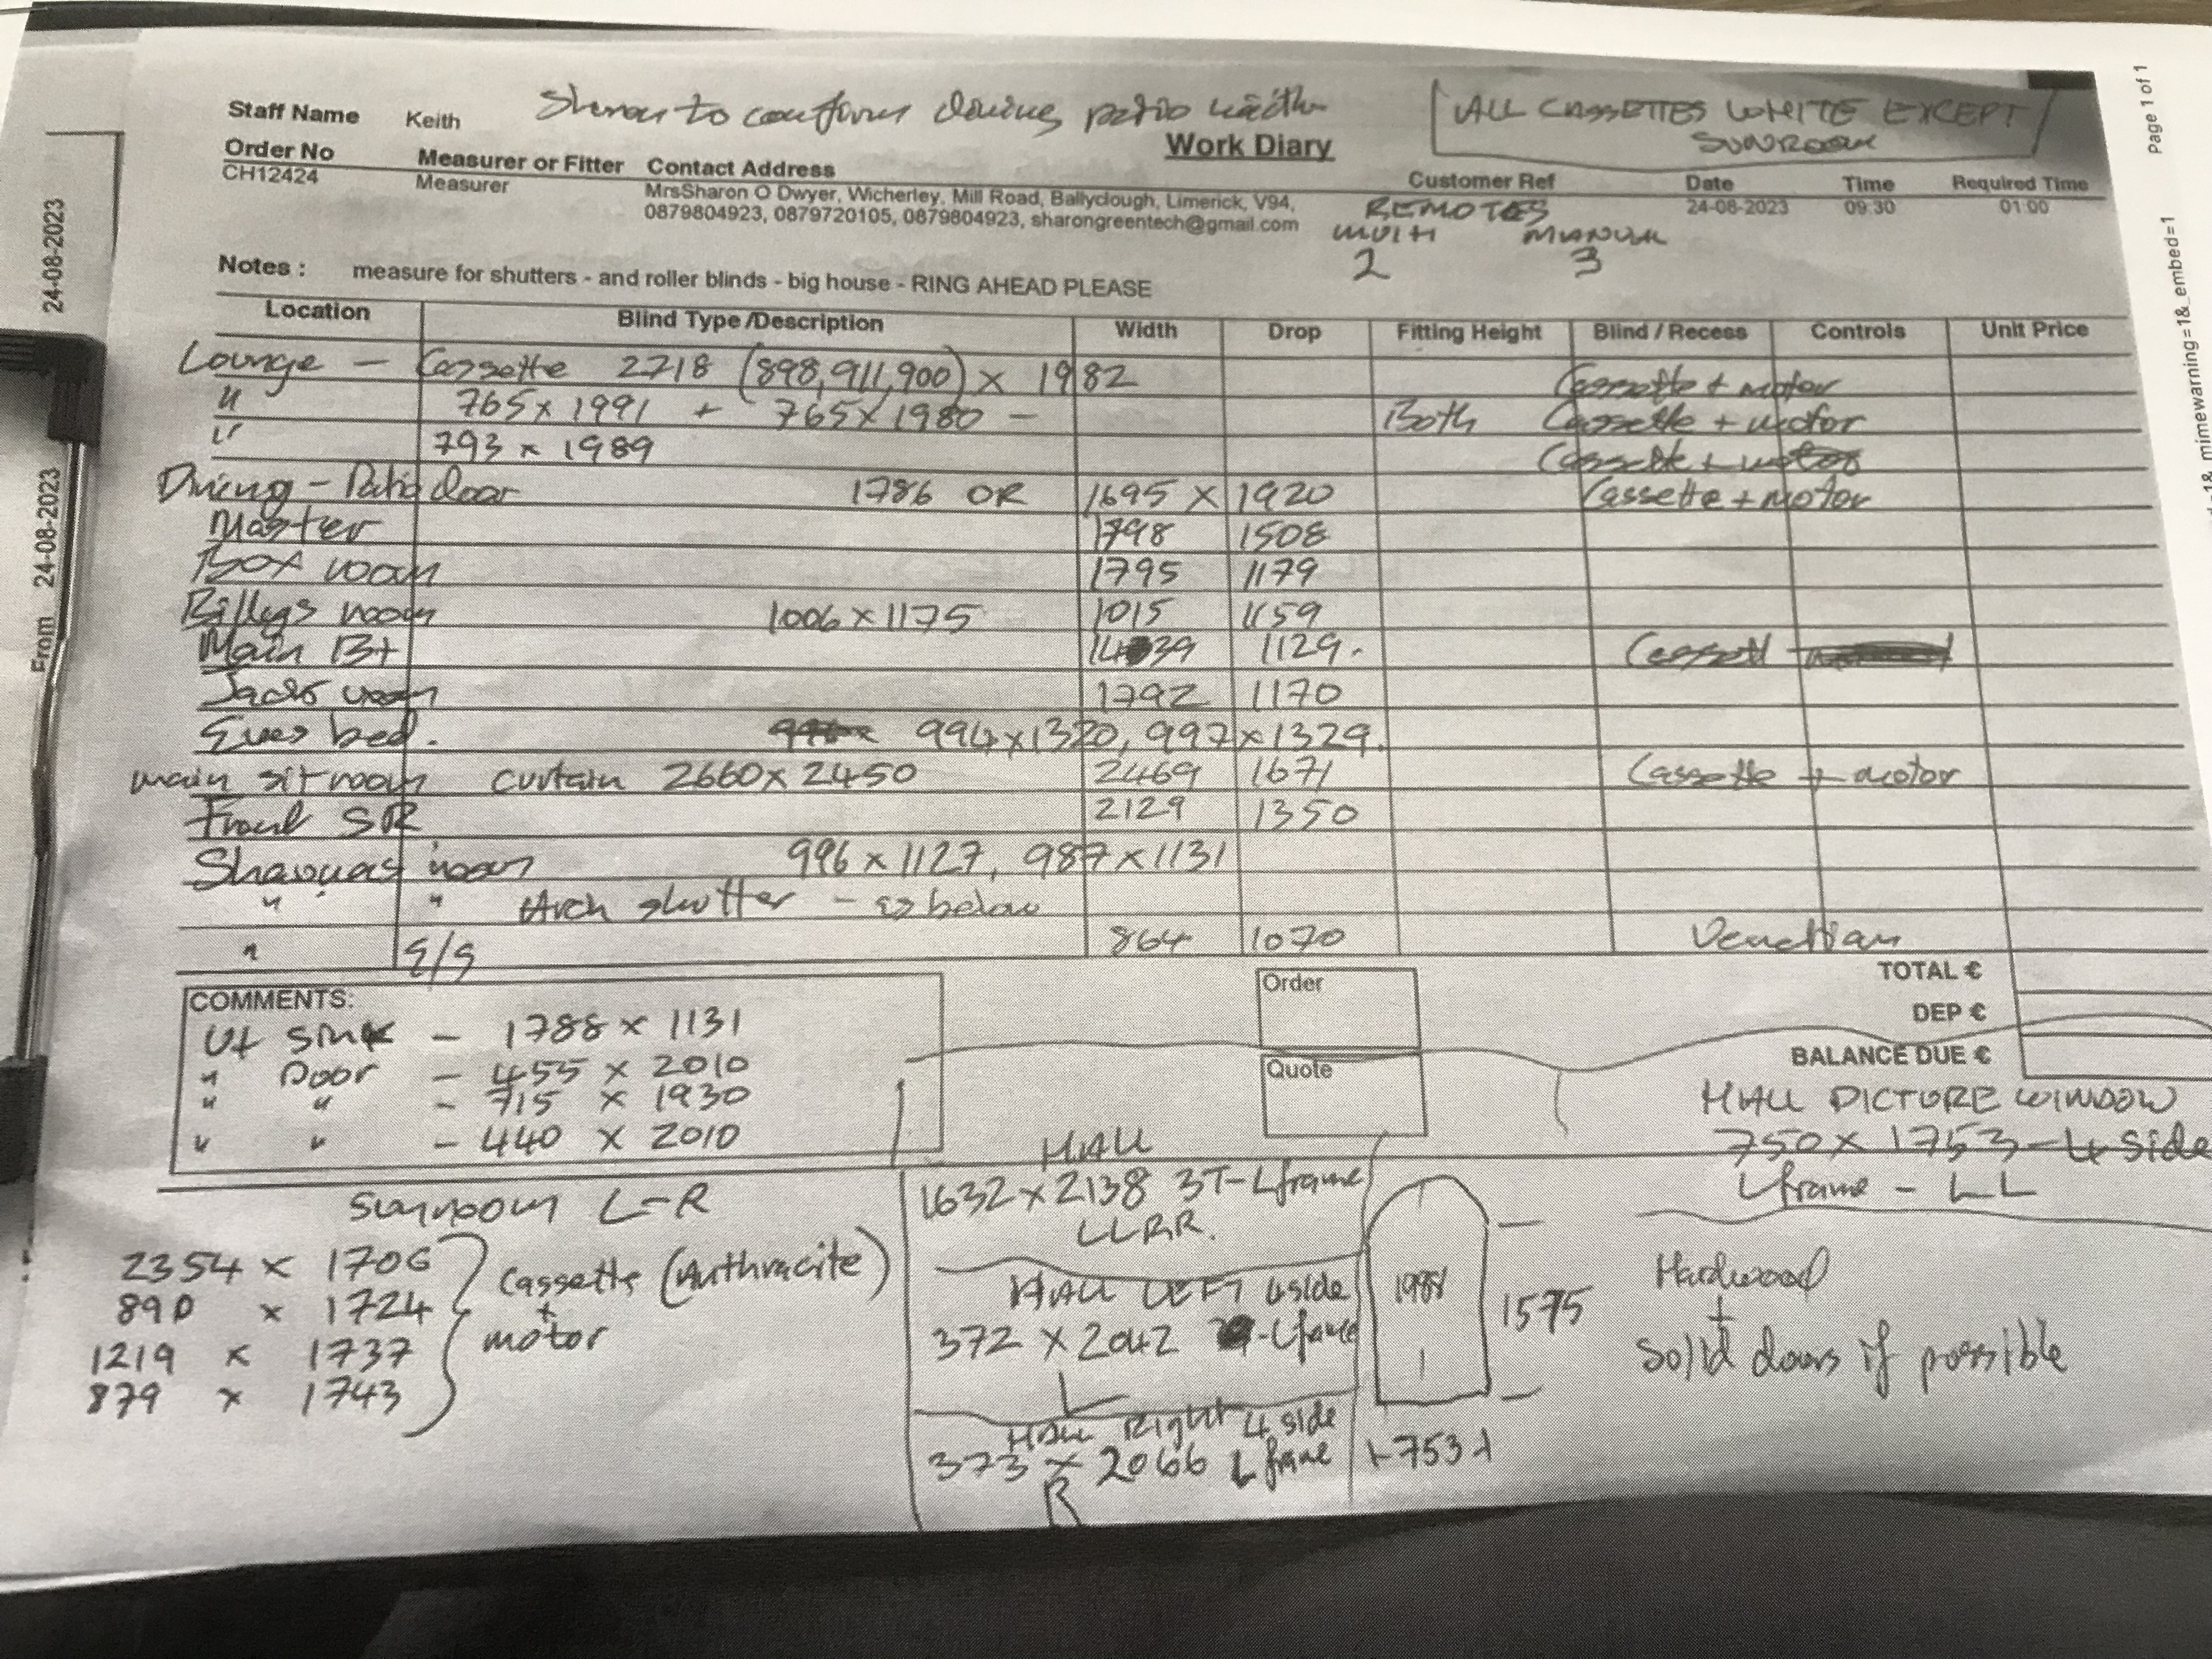 Staff Name Keith Sharon to confirm dining patio width
[ALL CASSETTES WHITE EXCEPT SUNROOM]
Work Diary
Order No Measurer or Fitter Contact Address Customer Ref Date Time Required Time
CH12424 Measurer MrsSharon O Dwyer, Wicherley, Mill Road, Ballyclough, Limerick, V94, 24-08-2023 09:30 01:00
0879804923, 0879720105, 0879804923, sharongreentech@gmail.com
REMOTES
MULTI MANUAL
2 3
Notes : measure for shutters - and roller blinds - big house - RING AHEAD PLEASE
Location Blind Type /Description Width Drop Fitting Height Blind / Recess Controls Unit Price
Lounge - Cassette 2718 (898,911,900) x 1982 Cassette + motor
" 765 x 1991 + 765 x 1980 - Both Cassette + motor
" 793 x 1989 Cassette + motor
Dining - Patio door 1786 OR 1695 x 1920 Cassette + motor
Master 1798 1508
Box room 1795 1179
Billys room 1006 x 1175 1015 1159
Main Bt 1439 1129. Cassett
Jacks room 1792 1170
Eves bed. 994 x 1320, 997 x 1329.
main sit room curtain 2660 x 2450 2469 1671 Cassette + motor
Front SR 2129 1350
room 996 x 1127, 987 x 1131
" " Arch shutter - as below
" E/S 864 1070 Venetian
TOTAL €
DEP €
BALANCE DUE €
Order
Quote
COMMENTS:
Ut Sink - 1788 x 1131
" Door - 455 x 2010
" " - 715 x 1930
" " - 440 x 2010
Sunroom L-R
2354 x 1706
890 x 1724
1219 x 1737
879 x 1743
Cassette (Anthracite)
+
motor
HALL
1632 x 2138 3T- L frame
LLRR.
HALL LEFT 4 side
372 x 2042 - L frame
L
HALL Right 4 side
373 x 2066 L frame
R
1988
1575
753
HALL PICTURE WINDOW
750 x 1753 - 4 Side
L frame - LL
Hardwood
+
Solid doors if possible
24-08-2023
From 24-08-2023
Page 1 of 1
mimewarning=1&_embed=1